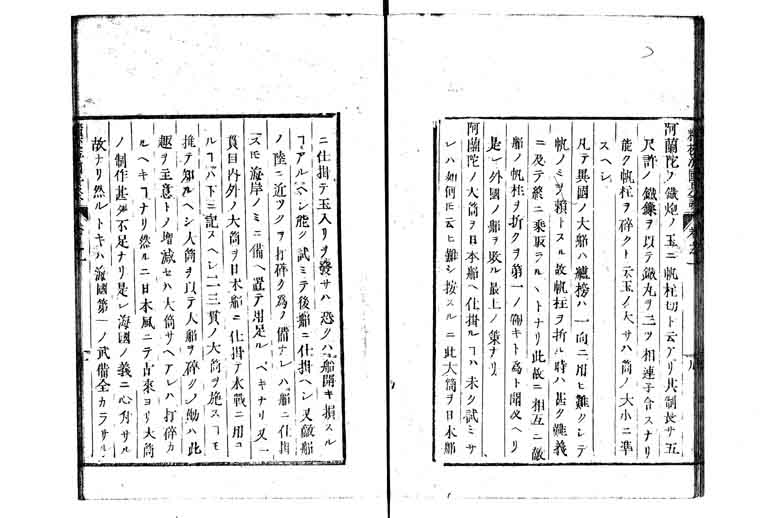 阿蘭陀ノ鐵炮ノ玉ニ帆柱切ト云アリ其制長サ五
尺許ノ鐵鏁ヲ以テ鐵丸ヲ二ツ相連子合スナリ
能ク帆柱ヲ碎クト云玉ノ大サハ筒ノ大小ニ準
スヘシ
凡テ異國ノ大船ハ艫榜ハ一向ニ用ヒ難クシテ
帆ノミヲ頼トスル故帆柱ヲ折ル時ハ甚ク難義
ニ及テ終ニ乗取ラルヽトナリ此故ニ相互ニ敵
船ノ帆柱ヲ折クヲ第一ノ働キト為ト聞及ヘリ
是レ外國ノ船ヲ敗ル最上ノ策ナリ
阿蘭陀ノ大筒ヲ日本船ヘ仕掛ルヿハ未ク試ミサ
レハ如何モ云ヒ難シ按スルニ此大筒ヲ日本船
ニ仕掛テ玉入リヲ發サハ恐クハ船開キ損スル
ヿアルヘシ能ク試ミテ後船ニ仕掛ヘシ又敵船
ノ陸ニ近ツクヲ打碎ク為ノ備ナレハ船ニ仕掛
スモ海岸ノミニ備ヘ置テ用足ルベキナリ又一
貫目内外ノ大筒ヲ日本船ニ仕掛テ水戰ニ用ユ
ルヿハ下ニ記スヘシ二三貫ノ大筒ヲ施スヿモ
推テ知ルヘシ大筒ヲ以テ大船ヲ碎クノ働ハ此
趣ヲ主意トノ増減セハ大筒サヘアレハ打碎カ
ルヘキヿナリ然ルニ日本風ニテ古來ヨリ大筒
ノ制作甚タ不足ナリ是レ海國ノ義ニ心付サル
故ナリ然ルトキハ海國第一ノ武備全カラサル